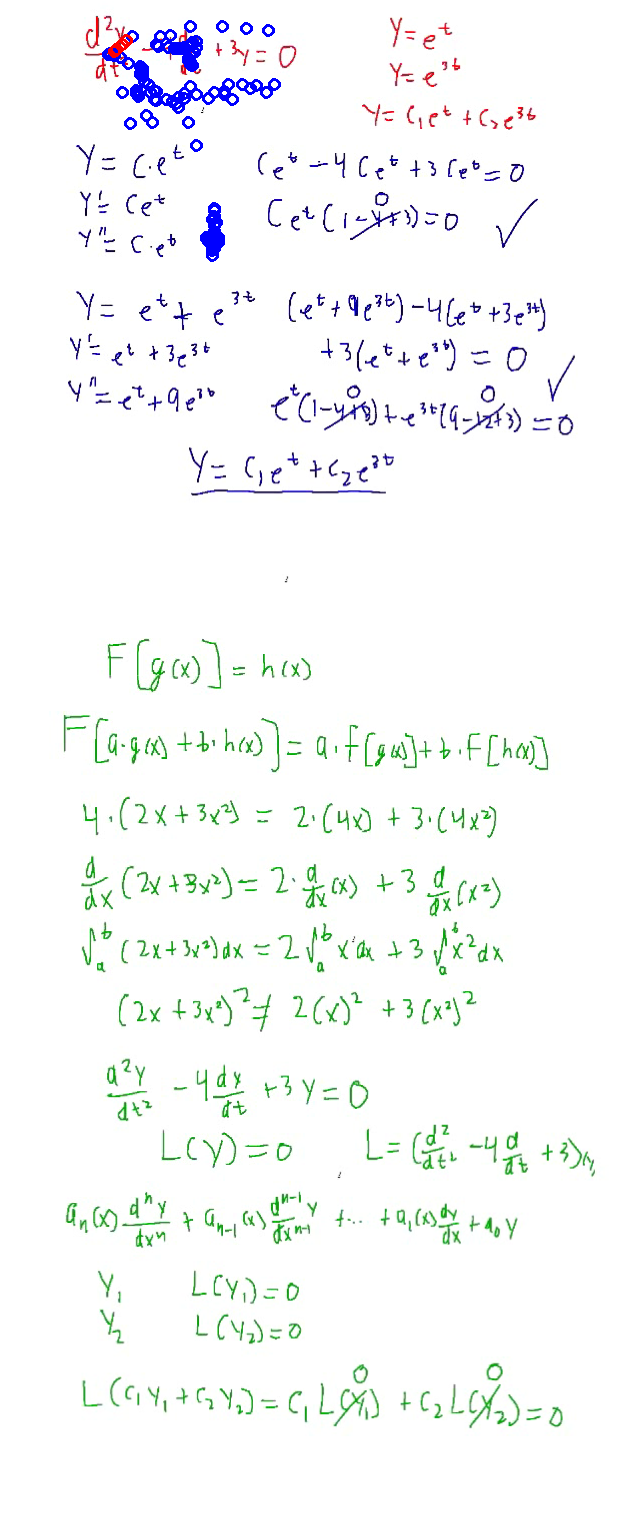 d²y/dt + 3y = 0
y = e^t
y = e^3t
y = c₁e^t + c₂e^3t
y = C·e^t
Ce^t - 4Ce^t + 3Ce^t = 0
y' = Ce^t
Ce^t(1-4+3) = 0 ✓
0
y'' = C·e^t
y = e^t + e^3t
(e^t + 9e^3t) - 4(e^t + 3e^3t)
y' = e^t + 3e^3t
+3(e^t + e^3t) = 0 ✓
y'' = e^t + 9e^3t
0 0
e^t(1-4+3) + e^3t(9-12+3) = 0
y = c₁e^t + c₂e^3t
F[g(x)] = h(x)
F[a·g(x) + b·h(x)] = a·f[g(x)] + b·F[h(x)]
4·(2x + 3x²) = 2·(4x) + 3·(4x²)
d/dx (2x + 3x²) = 2·d/dx(x) + 3 d/dx(x²)
∫ₐᵇ (2x + 3x²)dx = 2∫ₐᵇ x dx + 3∫ₐᵇ x² dx
(2x + 3x²)² ≠ 2(x)² + 3(x²)²
d²y/dt² - 4dy/dt + 3y = 0
L(y) = 0
L = (d²/dt² - 4d/dt + 3)y
aₙ(x) dⁿy/dxⁿ + aₙ₋₁(x) dⁿ⁻¹y/dxⁿ⁻¹ + ... + a₁(x) dy/dx + a₀y
y₁ L(y₁) = 0
y₂ L(y₂) = 0
0 0
L(c₁y₁ + c₂y₂) = c₁L(y₁) + c₂L(y₂) = 0